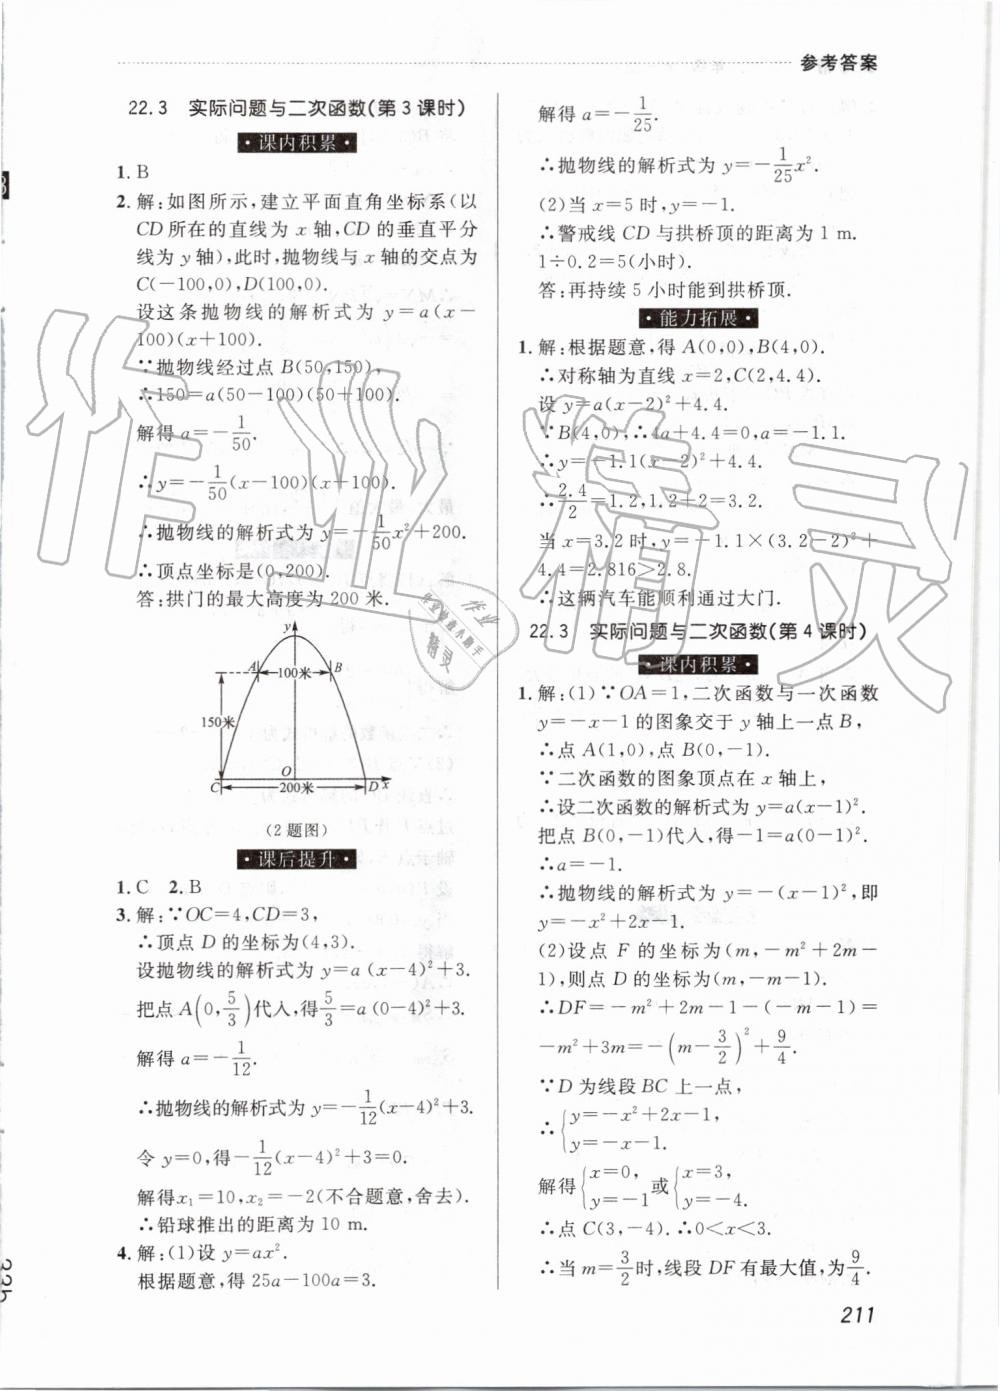 参考答案
22.3 实际问题与二次函数(第3课时)
·课内积累·
1. B
2. 解:如图所示,建立平面直角坐标系(以
CD所在的直线为 x 轴,CD的垂直平分
线为 y 轴),此时,抛物线与 x 轴的交点为
C(-100,0),D(100,0).
设这条抛物线的解析式为 y=a(x-
100)(x+100).
∵抛物线经过点 B(50,150),
∴150=a(50-100)(50+100).
解得 a=-1/50.
∴y=-1/50(x-100)(x+100).
∴抛物线的解析式为 y=-1/50x²+200.
∴顶点坐标是(0,200).
答:拱门的最大高度为 200 米.
y
A 100米 B
150米
O
C 200米 D x
(2题图)
·课后提升·
1. C 2. B
3. 解:∵OC=4,CD=3,
∴顶点 D 的坐标为(4,3).
设抛物线的解析式为 y=a(x-4)²+3.
把点 A(0,5/3)代入,得5/3=a(0-4)²+3.
解得 a=-1/12.
∴抛物线的解析式为 y=-1/12(x-4)²+3.
令 y=0,得-1/12(x-4)²+3=0.
解得x₁=10,x₂=-2(不合题意,舍去).
∴铅球推出的距离为 10 m.
4. 解:(1)设 y=ax².
根据题意,得 25a-100a=3.
解得 a=-1/25.
∴抛物线的解析式为 y=-1/25x².
(2)当 x=5 时,y=-1.
∴警戒线 CD 与拱桥顶的距离为 1 m.
1÷0.2=5(小时).
答:再持续 5 小时能到拱桥顶.
·能力拓展·
1. 解:根据题意,得 A(0,0),B(4,0).
∴对称轴为直线 x=2,C(2,4.4).
设 y=a(x-2)²+4.4.
∵B(4,0),∴4a+4.4=0,a=-1.1.
∴y=-1.1(x-2)²+4.4.
∴2.4/2=1.2,1.2+2=3.2.
当 x=3.2 时,y=-1.1×(3.2-2)²+
4.4=2.816>2.8.
∴这辆汽车能顺利通过大门.
22.3 实际问题与二次函数(第4课时)
·课内积累·
1. 解:(1)∵OA=1,二次函数与一次函数
y=-x-1 的图象交于 y 轴上一点 B,
∴点 A(1,0),点 B(0,-1).
∵二次函数的图象顶点在 x 轴上,
∴设二次函数的解析式为 y=a(x-1)².
把点 B(0,-1)代入,得-1=a(0-1)².
∴a=-1.
∴抛物线的解析式为 y=-(x-1)²,即
y=-x²+2x-1.
(2)设点 F 的坐标为(m,-m²+2m-
1),则点 D 的坐标为(m,-m-1).
∴DF=-m²+2m-1-(-m-1)=
-m²+3m=-(m-3/2)²+9/4.
∵D 为线段 BC 上一点,
∴{y=-x²+2x-1,
y=-x-1.
解得{x=0, y=-1 或{x=3, y=-4.
∴点 C(3,-4).∴0<x<3.
∴当 m=3/2时,线段 DF 有最大值,为9/4.
211
作业精灵
作业
作业检查小助手
精灵